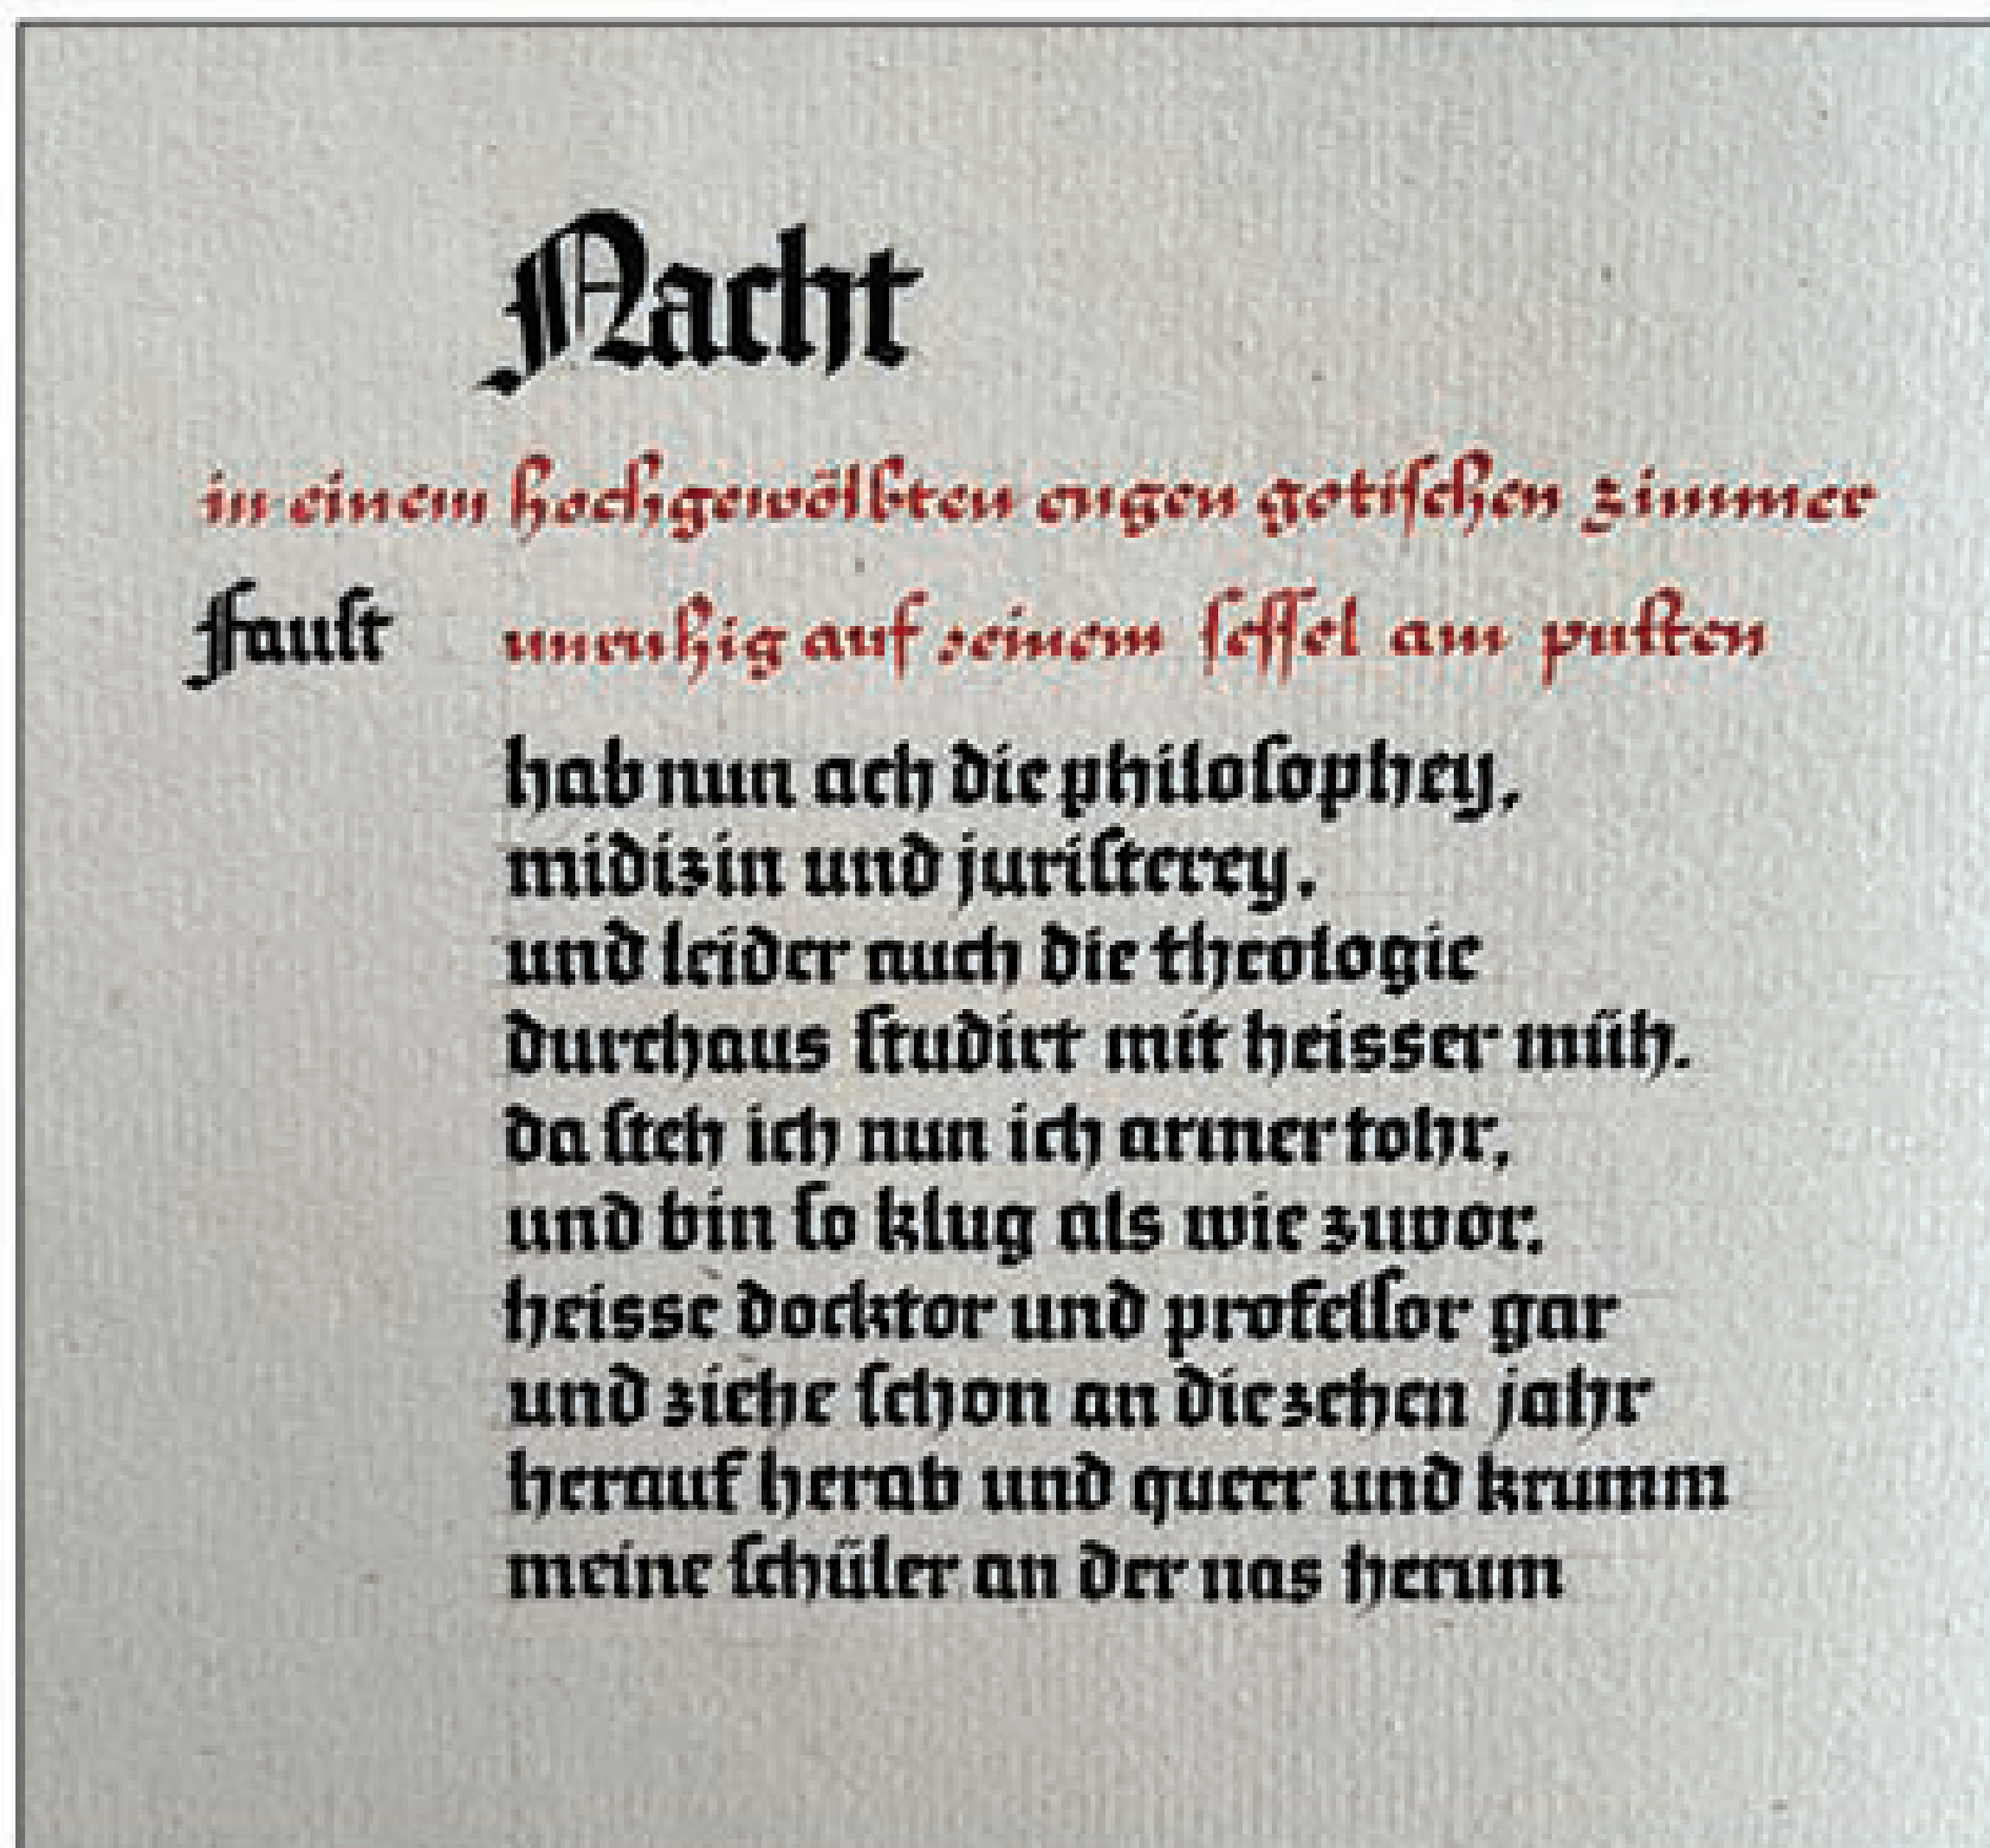 Nacht
in einem hochgewölbten engen gotiſchen zimmer
Fauſt unruhig auf seinem ſeſſel am pulten
hab nun ach die philoſophey,
midizin und juriſterey,
und leider auch die theologie
durchaus ſtudirt mit heisser müh.
da ſteh ich nun ich armer tohr,
und bin ſo klug als wie zuvor.
heisse docktor und profeſſor gar
und ziehe ſchon an die zehen jahr
herauf herab und queer und krumm
meine ſchüler an der nas herum